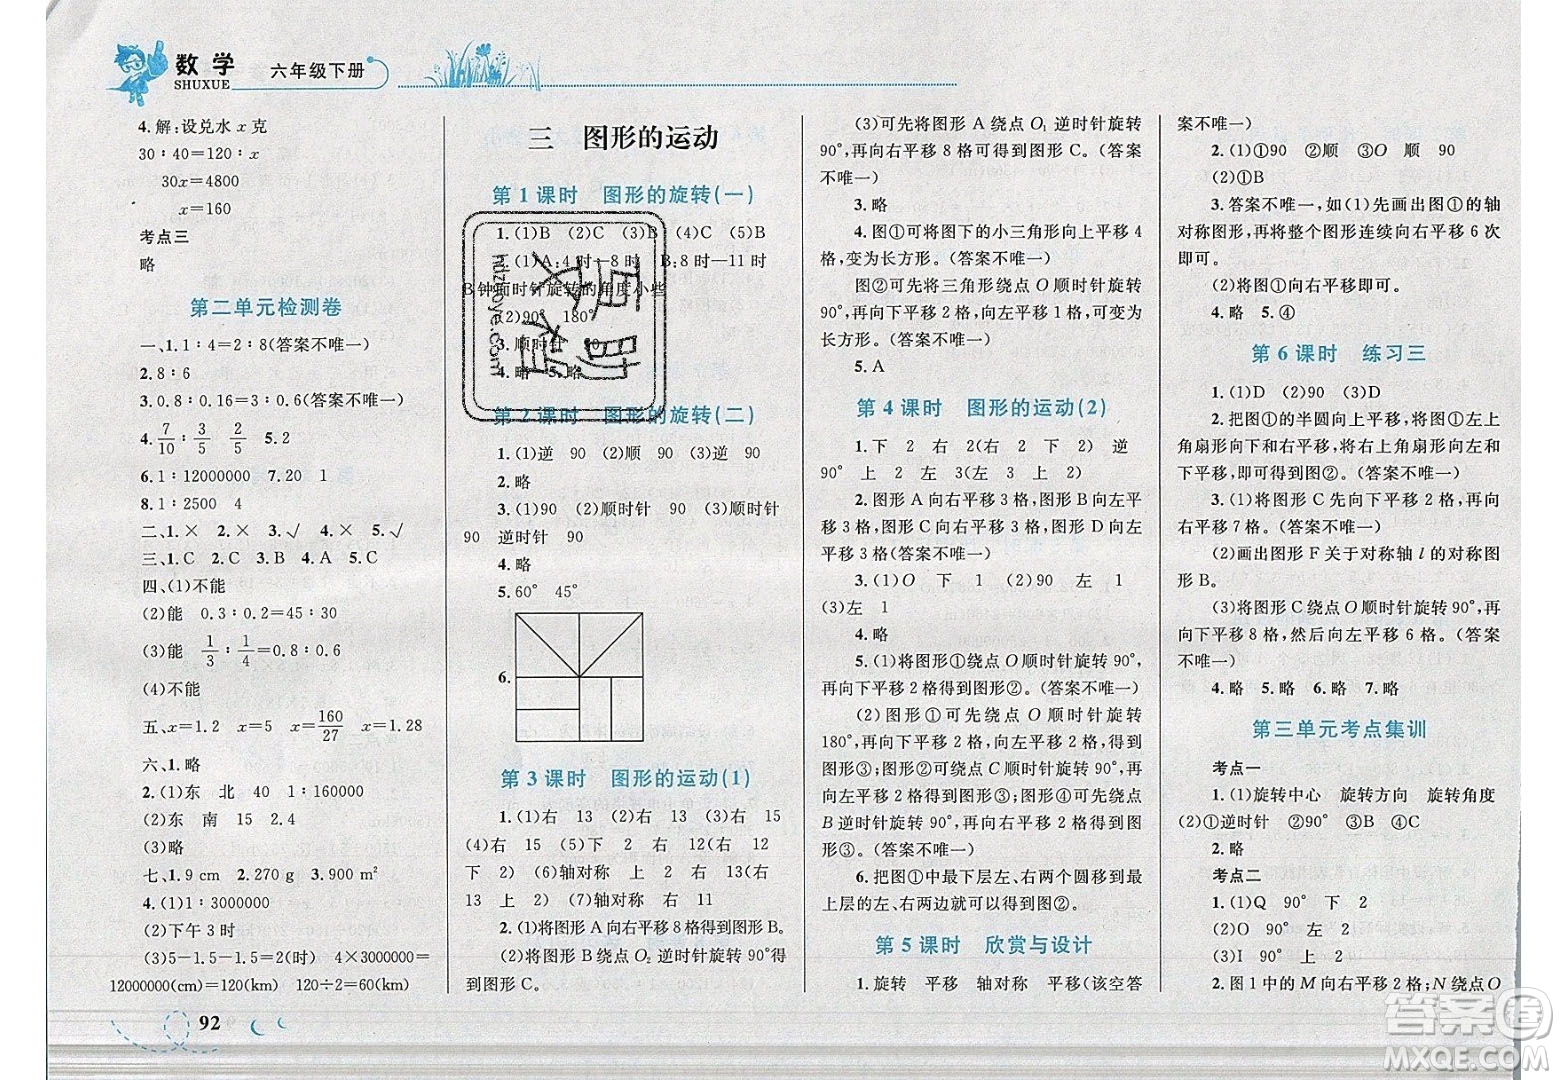 数学
SHUXUE
六年级下册
4.解:设兑水 x 克
30∶40=120∶x
30x=4800
x=160
考点三
略
第二单元检测卷
一、1.1∶4=2∶8(答案不唯一)
2.8∶6
3.0.8∶0.16=3∶0.6(答案不唯一)
4.7/10∶3/5 2/5 5.2
6.1∶12000000 7.20 1
8.1∶2500 4
二、1.× 2.× 3.√ 4.× 5.√
三、1.C 2.C 3.B 4.A 5.C
四、(1)不能
(2)能 0.3∶0.2=45∶30
(3)能 1/3∶1/4=0.8∶0.6
(4)不能
五、x=1.2 x=5 x=160/27 x=1.28
六、1.略
2.(1)东 北 40 1∶160000
(2)东 南 15 2.4
(3)略
七、1.9 cm 2.270 g 3.900 m²
4.(1)1∶3000000
(2)下午 3 时
(3)5-1.5-1.5=2(时) 4×3000000=
12000000(cm)=120(km) 120÷2=60(km)
92
三 图形的运动
第 1 课时 图形的旋转(一)
1.(1)B (2)C (3)B (4)C (5)B
2.(1)A:4 时—8 时 B:8 时—11 时
B 钟面时针旋转的角度小些
(2)90° 180°
3.顺时针 90
4.略 5.略
第 2 课时 图形的旋转(二)
1.(1)逆 90 (2)顺 90 (3)逆 90
2.略
3.(1)90 (2)顺时针 90 (3)顺时针
90 逆时针 90
4.略
5.60° 45°
6.
第 3 课时 图形的运动(1)
1.(1)右 13 (2)右 13 (3)右 15
(4)右 15 (5)下 2 右 12(右 12
下 2) (6)轴对称 上 2 右 13(右
13 上 2) (7)轴对称 右 11
2.(1)将图形 A 向右平移 8 格得到图形 B。
(2)将图形 A 绕点 O₂ 逆时针旋转 90°得
到图形 C。
(3)可先将图形 A 绕点 O₁ 逆时针旋转
90°,再向右平移 8 格可得到图形 C。(答案
不唯一)
3.略
4.图①可将图下的小三角形向上平移 4
格,变为长方形。(答案不唯一)
图②可先将三角形绕点 O 顺时针旋转
90°,再向下平移 2 格,向左平移 1 格,可变为
长方形。(答案不唯一)
5.A
第 4 课时 图形的运动(2)
1.下 2 右 2(右 2 下 2) 逆
90° 上 2 左 3(左 3 上 2)
2.图形 A 向右平移 3 格,图形 B 向左平
移 3 格,图形 C 向右平移 3 格,图形 D 向左
平移 3 格(答案不唯一)
3.(1)O 下 1 (2)90 左 1
(3)左 1
4.略
5.(1)将图形①绕点 O 顺时针旋转 90°,
再向下平移 2 格得到图形②。(答案不唯一)
(2) 图形①可先绕点 O 顺时针旋转
180°,再向下平移 2 格,向左平移 2 格,得到
图形②;图形②先绕点 C 顺时针旋转 90°,再
向左平移 2 格得到图形③;图形②先绕点
B 逆时针旋转 90°,再向右平移 2 格,得到图
形③。(答案不唯一)
6.把图①中最下层左、右两个圆移到最
上层的左、右两边就可以得到图②。
第 5 课时 欣赏与设计
1.旋转 平移 轴对称 平移(该空答
案不唯一)
2.(1)①90 ②顺 ③O 顺 90
(2)①B
3.答案不唯一,如(1)先画出图①的轴
对称图形,再将整个图形连续向右平移 6 次
即可。
(2)将图①向右平移即可。
4.略 5.④
第 6 课时 练习三
1.(1)D (2)90 (3)D
2.把图①的半圆向上平移,将左上
角扇形向下和右平移,将右上角扇形向左和
下平移,即可得到图②。(答案不唯一)
3.(1)将图形 C 先向下平移 2 格,再向
右平移 7 格。(答案不唯一)
(2)画出图形 F 关于对称轴 l 的对称图
形 B。
(3)将图形 C 绕点 O 顺时针旋转 90°,再
向下平移 8 格,然后向左平移 6 格。(答案
不唯一)
4.略 5.略 6.略 7.略
第三单元考点集训
考点一
1.(1)旋转中心 旋转方向 旋转角度
(2)①逆时针 ②90° ③B ④C
2.略
考点二
1.(1)Q 90° 下 2
(2)O 90° 左 2
(3)I 90° 上 2
2.图 1 中的 M 向右平移 2 格;N 绕点 O
hdzuoye.com
答案圈
MXQE.COM